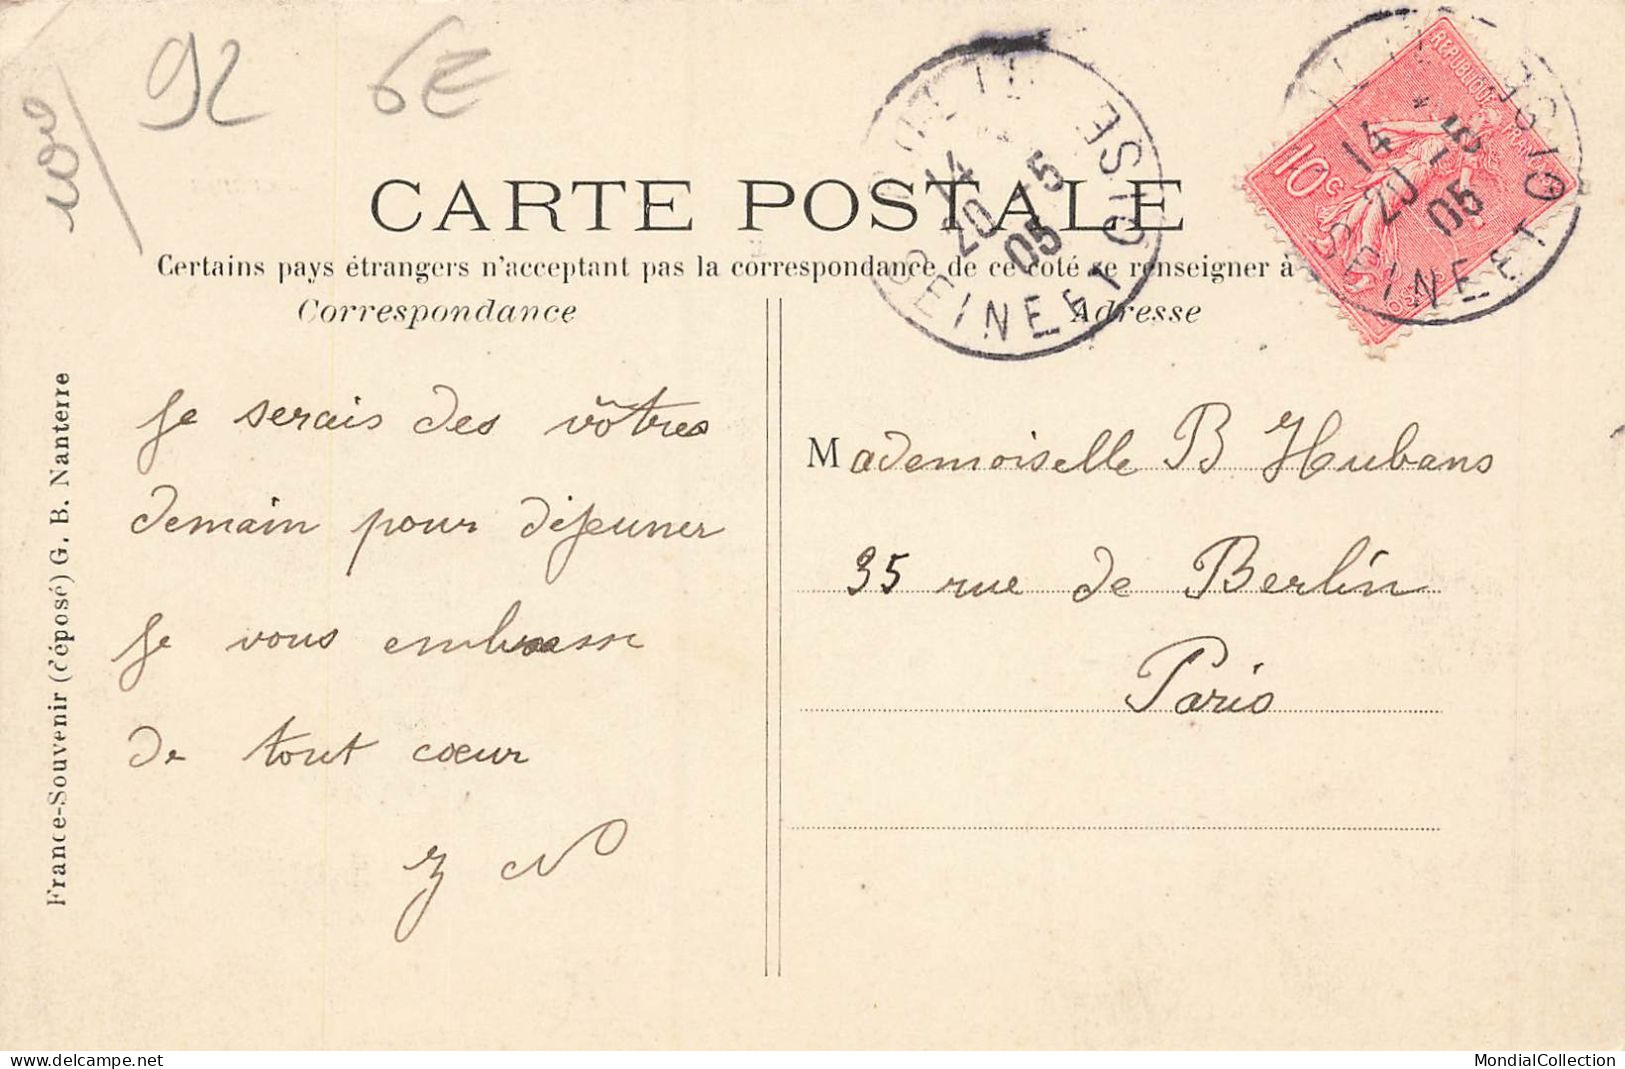 100
92 6E
CARTE POSTALE
Certains pays étrangers n'acceptant pas la correspondance de ce côté se renseigner à
Correspondance
Adresse
14
20 - 5
05
SEINE ET OISE
RÉPUBLIQUE FRANÇAISE
10c
POSTES
14
20 - 5
05
SEINE ET OISE
France-Souvenir (déposé) G. B. Nanterre
Je serais des vôtres
demain pour déjeuner
Je vous embrasse
de tout cœur
Mademoiselle B Hubans
35 rue de Berlin
Paris
delcampe.net
MondialCollection